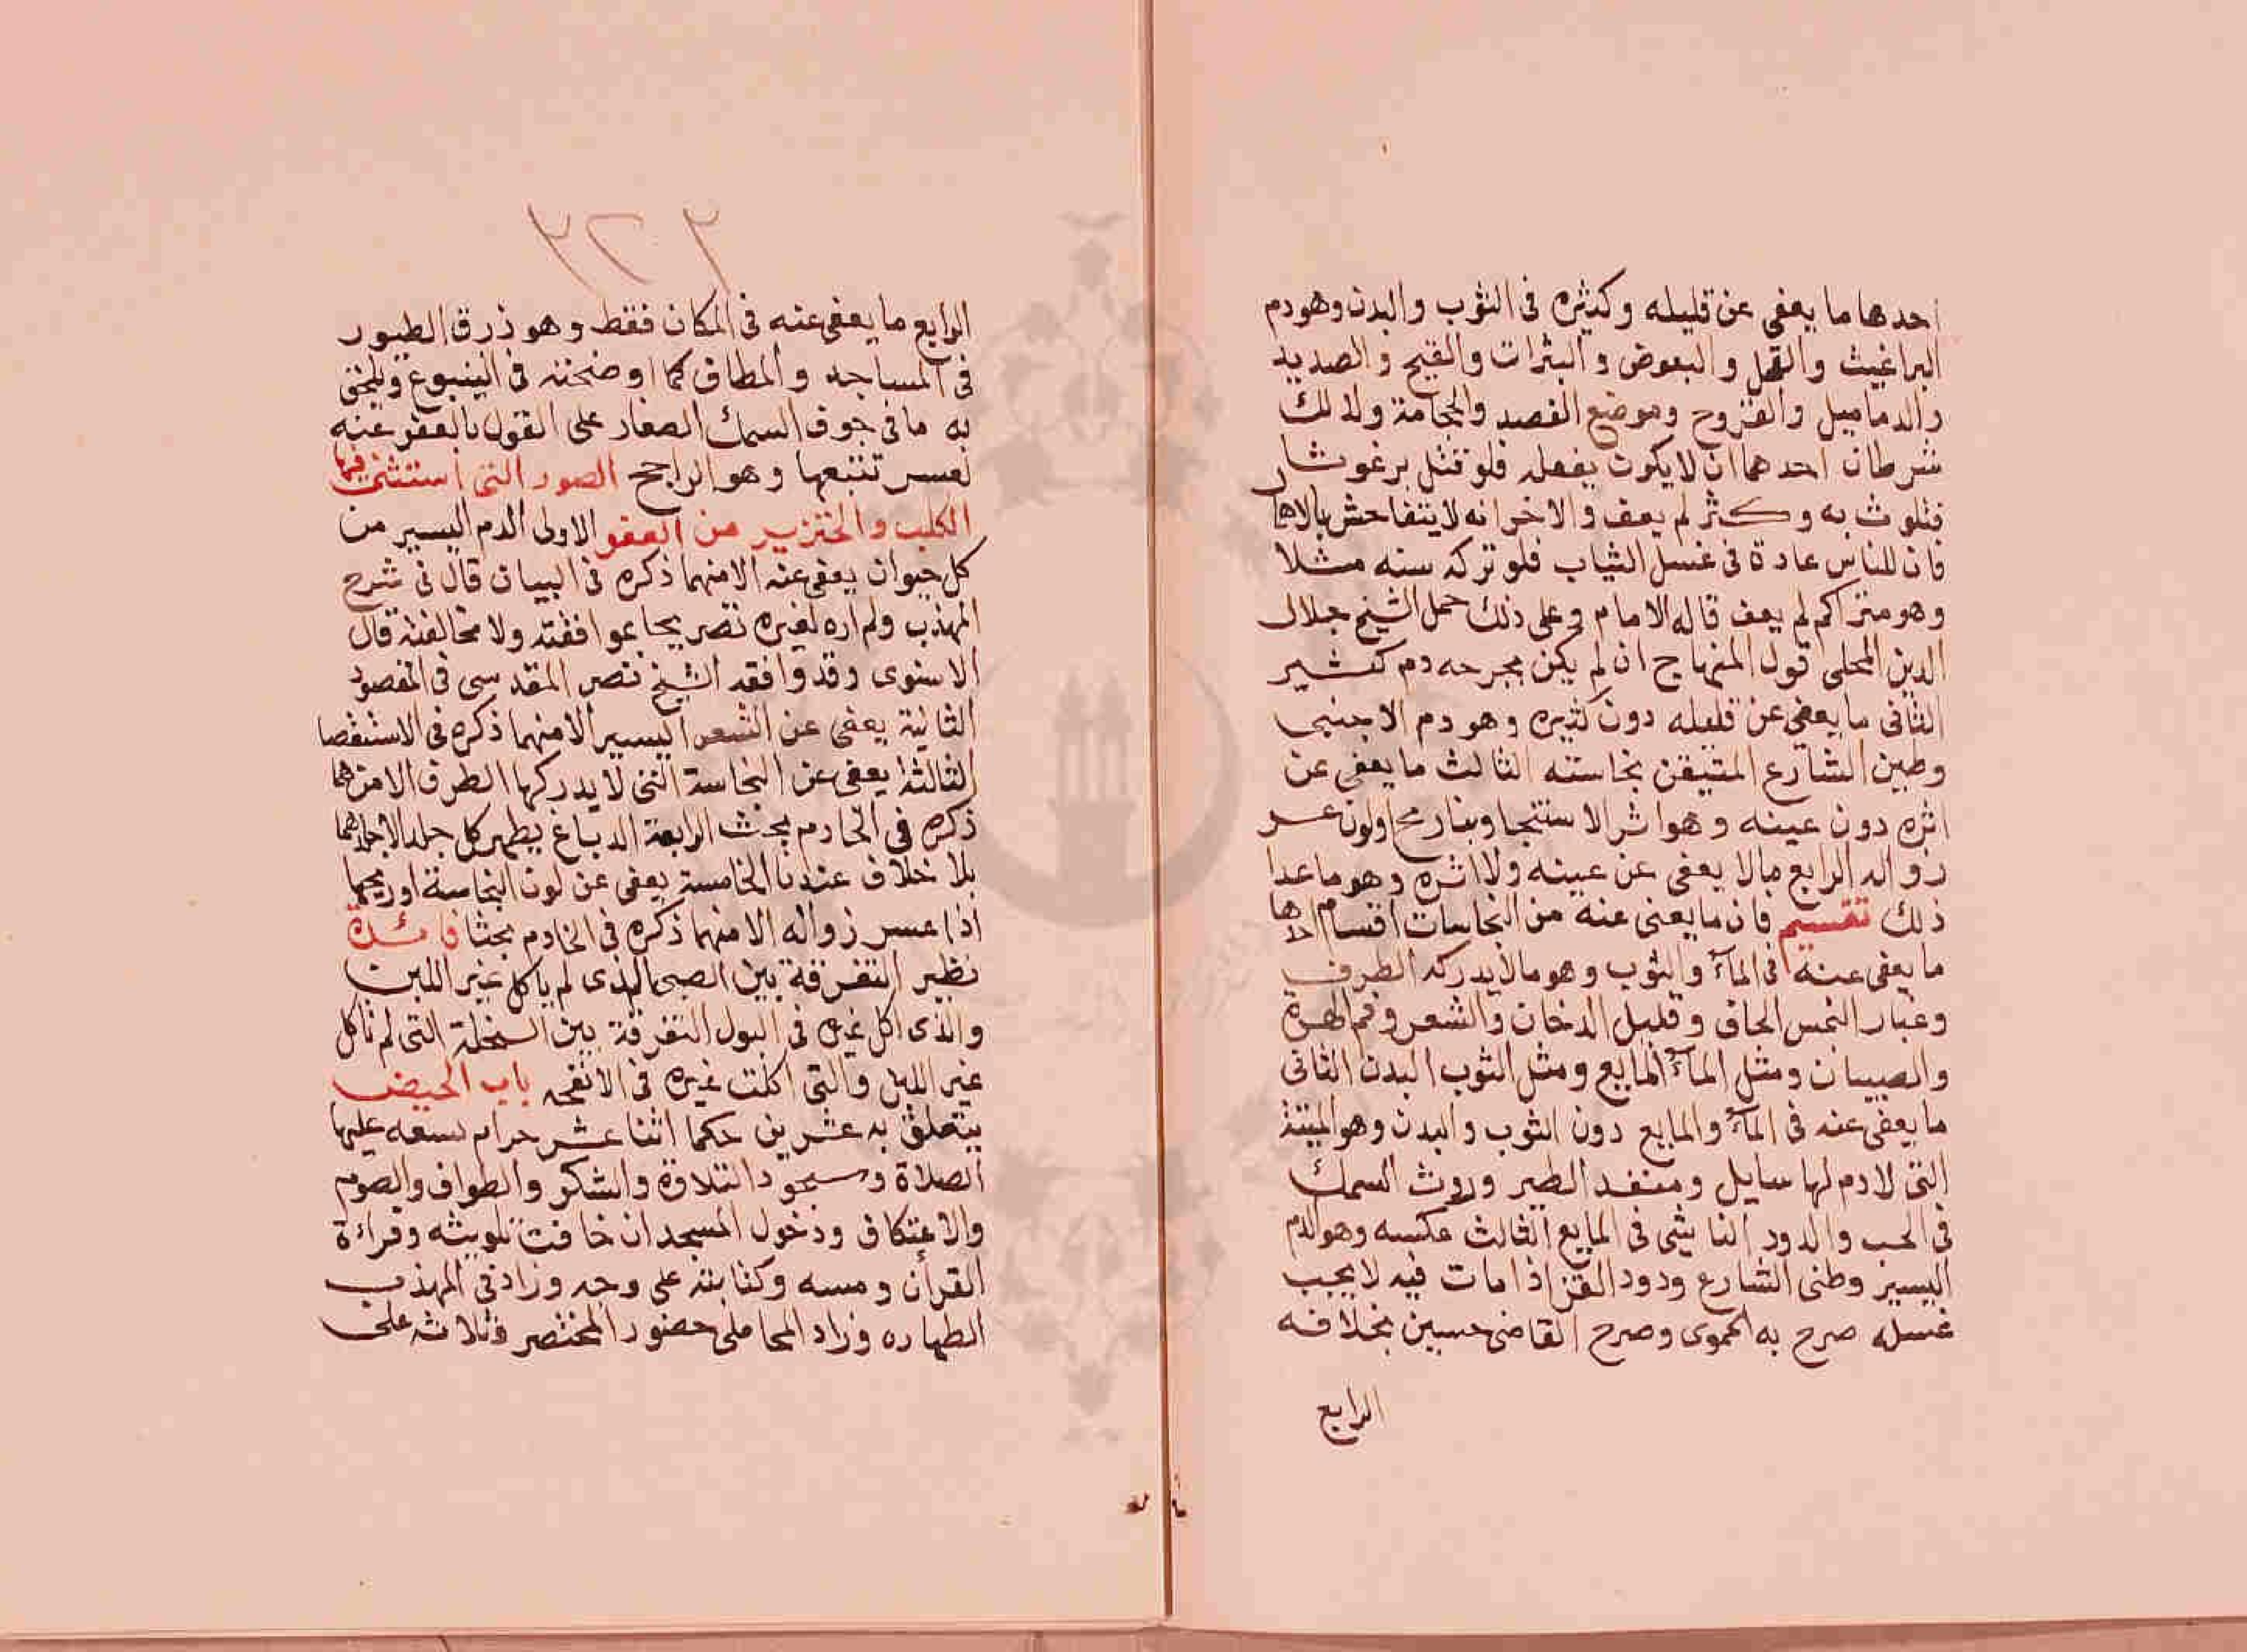 احدها ما يعفي عن قليله وكثيره في الثوب والبدن وهو دم
البراغيث والقمل والبعوض والبثرات والقيح والصديد
والدماميل والقروح وموضع الفصد والحجامة ولذلك
شرطان احدهما ان لا يكون بفعله فلو قتل برغوثا
فتلوث به وكثر لم يعف والاخر انه لا يتفاحش بالاهمال
فان للناس عادة في غسل الثياب فلو تركه سنه مثلا
وهو متراكم لم يعف قاله الامام وعلى ذلك حمل الشيخ جلال
الدين المحلى قول المنهاج ان لم يكن بجرحه دم كثير
الثاني ما يعفي عن قليله دون كثيره وهو دم الاجنبي
وطين الشارع المتيقن نجاسته الثالث ما يعفي عن
اثره دون عينه وهو اثر الاستنجا وبقا ريح اولون عسر
زواله الرابع مالا يعفي عن عينه ولا اثره وهو ما عدا
ذلك تقسيم فان ما يعفي عنه من النجاسات اقسام احدها
ما يعفي عنه في المآء والثوب وهو مالا يدركه الطرف
وغبار النجس الجاف وقليل الدخان والشعر وفم الهرة
والصبيان ومثل المآء المايع ومثل الثوب البدن الثاني
ما يعفي عنه في المآء والمايع دون الثوب والبدن وهو الميتة
التي لا دم لها سايل ومنفد الطير وروث السمك
في الحب والدود الناشي في المايع الثالث عكسه وهو الدم
اليسير وطين الشارع ودود القز اذا مات فيه لا يجب
غسله صرح به الحموى وصرح القاضي حسين بخلافه
الرابع
٢٢٣
الرابع ما يعفي عنه في المكان فقط وهو ذرق الطيور
في المساجد والمطاف كما اوضحته في الينبوع ويلحق
به ما في جوف السمك الصغار على القول بالعفو عنه
لعسر تتبعها وهو الراجح الصور التي استثنى فيها
الكلب والخنزير من العفو الاولى الدم اليسير من
كل حيوان يعفي عنه الا منهما ذكره في البيان قال في شرح
المهذب ولم اره لغيره تصريحا بموافقته ولا مخالفته قال
الاسنوى وقد وافقه الشيخ نصر المقدسي في المقصود
الثانية يعفي عن الشعر اليسير الا منهما ذكره في الاستقصا
الثالثة يعفي عن النجاسة التي لا يدركها الطرف الا منهما
ذكره في الخادم بحث الرابعة الدباغ يطهر كل جلد الا جلدهما
بلا خلاف عندنا الخامسة يعفي عن لون النجاسة او ريحها
اذا عسر زواله الا منهما ذكره في الخادم بحثا فائدة
نظير التفرقة بين الصبي الذى لم ياكل غير اللبن
والذى اكل غيره في البول التفرقة بين السخلة التي لم تاكل
غير اللبن والتي اكلت غيره في الانفحه باب الحيض
يتعلق به عشرين حكما اثنا عشر حرام تسعه عليها
الصلاة وسجود التلاوة والشكر والطواف والصوم
والاعتكاف ودخول المسجد ان خافت تلويثه وقراءة
القرآن ومسه وكتابته على وجه وزاد في المهذب
الطهاره وزاد المحاملى حضور المحتضر وثلاثه على